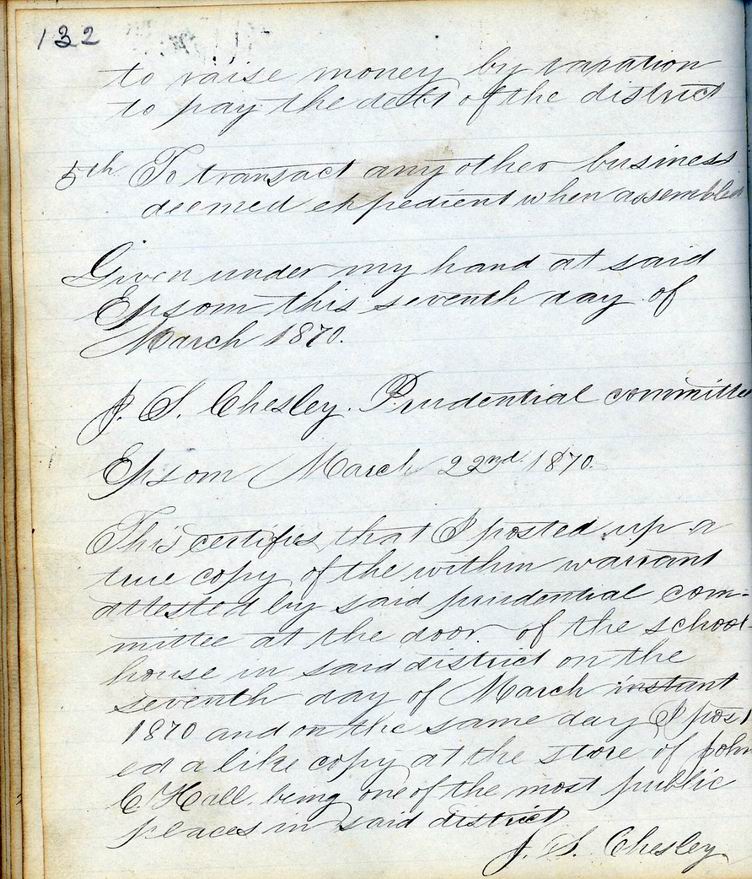 132
to raise money by taxation
to pay the debt of the district
5th To transact any other business
deemed expedient when assembled
Given under my hand at said
Epsom this seventh day of
March 1870.
J. S. Chesley. Prudential committee
Epsom March 22nd 1870.
This certifies that I posted up a
true copy of the within warrant
attested by said prudential com-
mittee at the door of the school-
house in said district on the
seventh day of March instant
1870 and on the same day I post
ed a like copy at the store of John
C Hall. being one of the most public
places in said district
J. S. Chesley